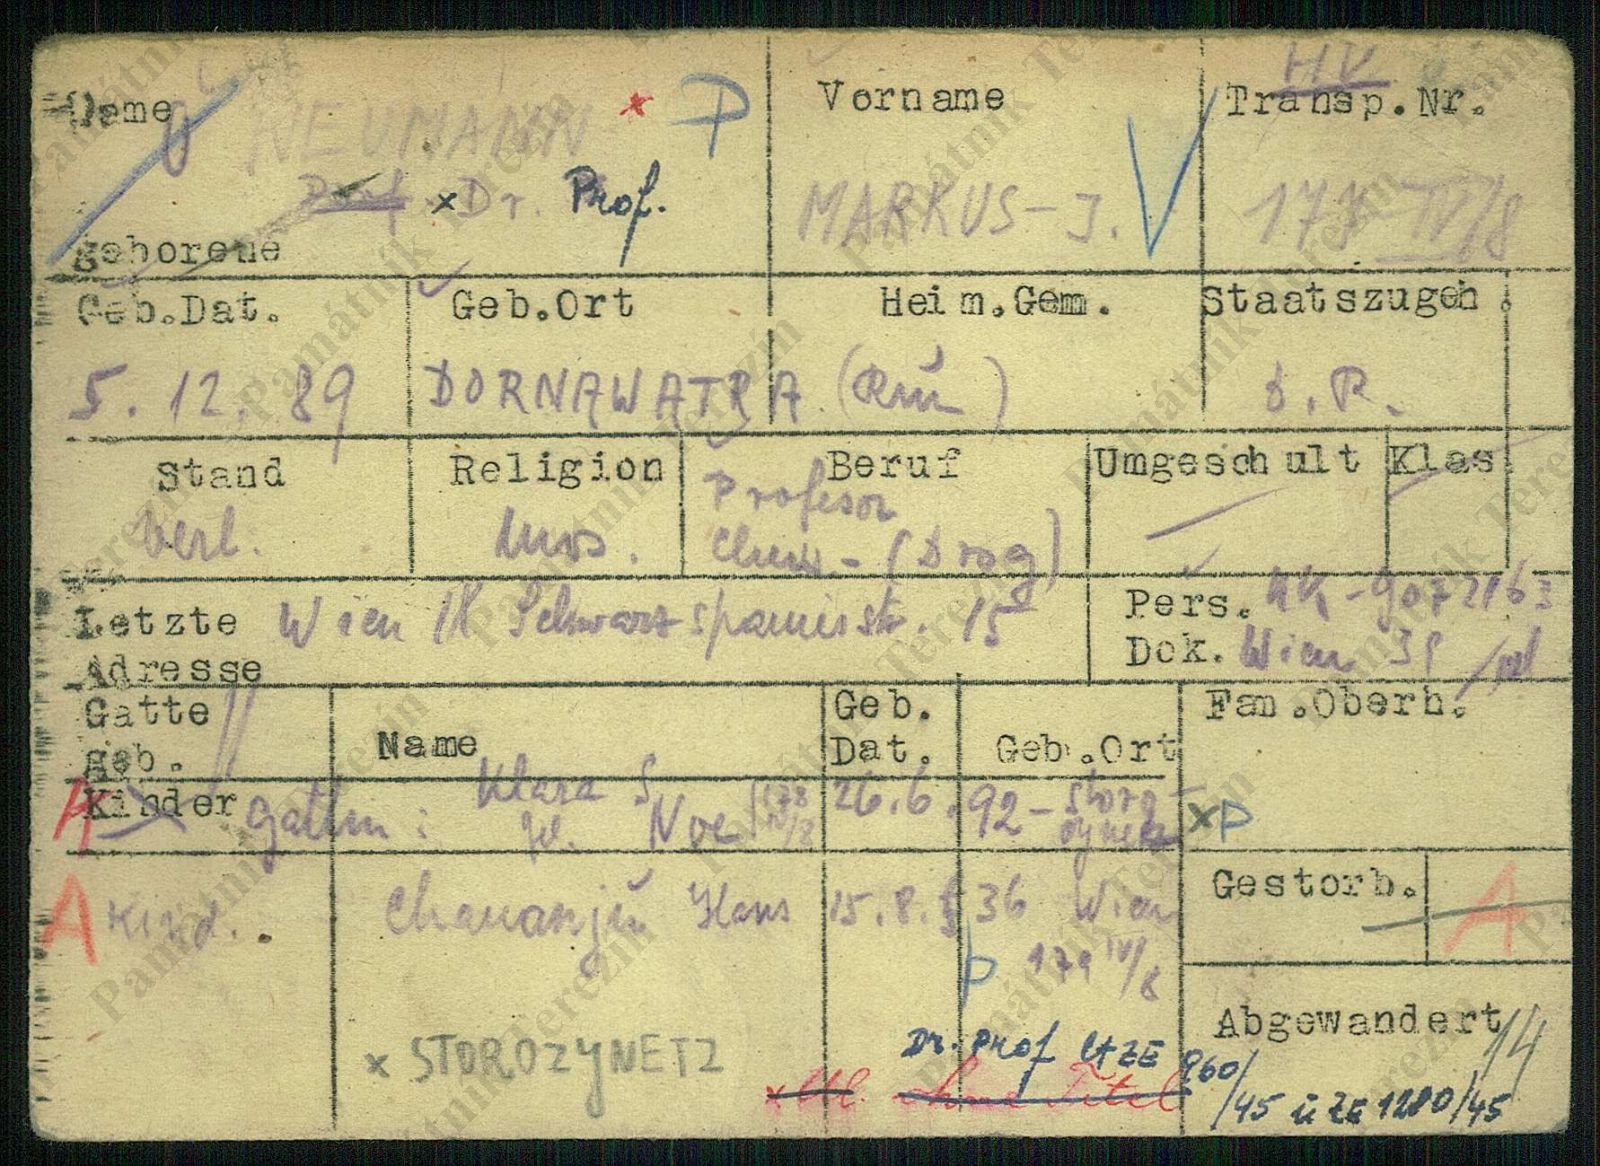 HV
Name
Vorname
Transp.Nr.
NEUMANN
P
x Dr. Prof.
MARKUS-J.
177-IV/8
geborene
Geb.Dat.
Geb.Ort
Heim.Gem.
Staatszugeh.
5.12.89
DORNAWATRA (Rum)
D.R.
Stand
Religion
Beruf
Umgeschult
Klas
verh.
mos.
Profesor
Chem. - (Drog)
Letzte
Adresse
Wien IX Schwarzspanierstr. 15
Pers.
Dok.
KK-9072163
Wien 39
Gatte
geb.
Kinder
Name
Geb.
Dat.
Geb.Ort
Fam.Oberh.
A
Gattin:
Klara S
Noe
178
IV/8
26.6.92
Storo-
zynetz
xP
A
Kind.
Hans
15.8.
36
Wien
179 IV/8
P
Gestorb.
A
Abgewandert
14
x STOROZYNETZ
Dr. Prof lt ZE 960/
/45 u ZE 1280/45
ohne Titel
Památník Terezín